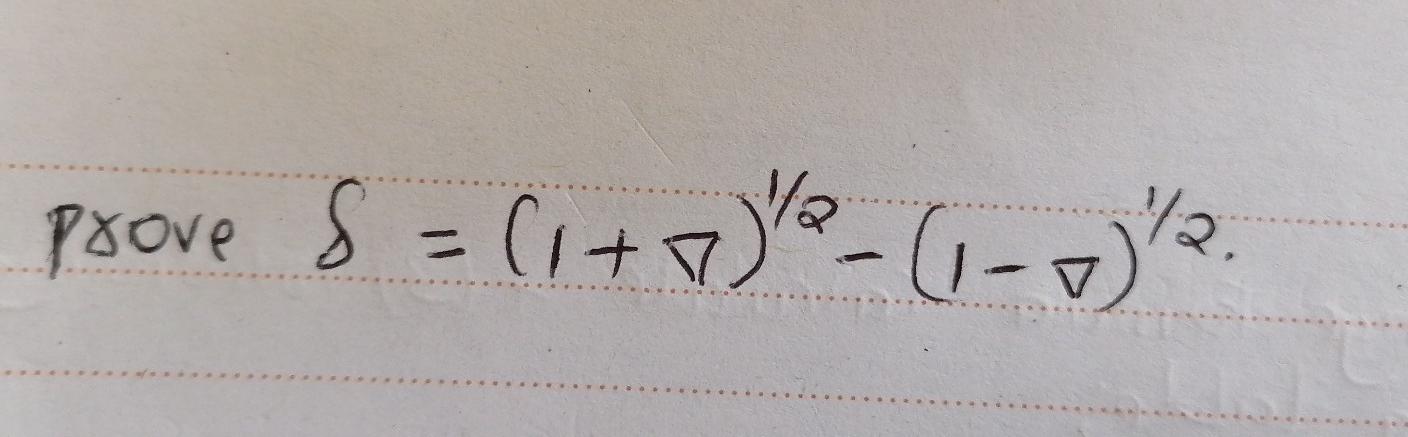 prove δ = (1 + ∇)^1/2 - (1 - ∇)^1/2.